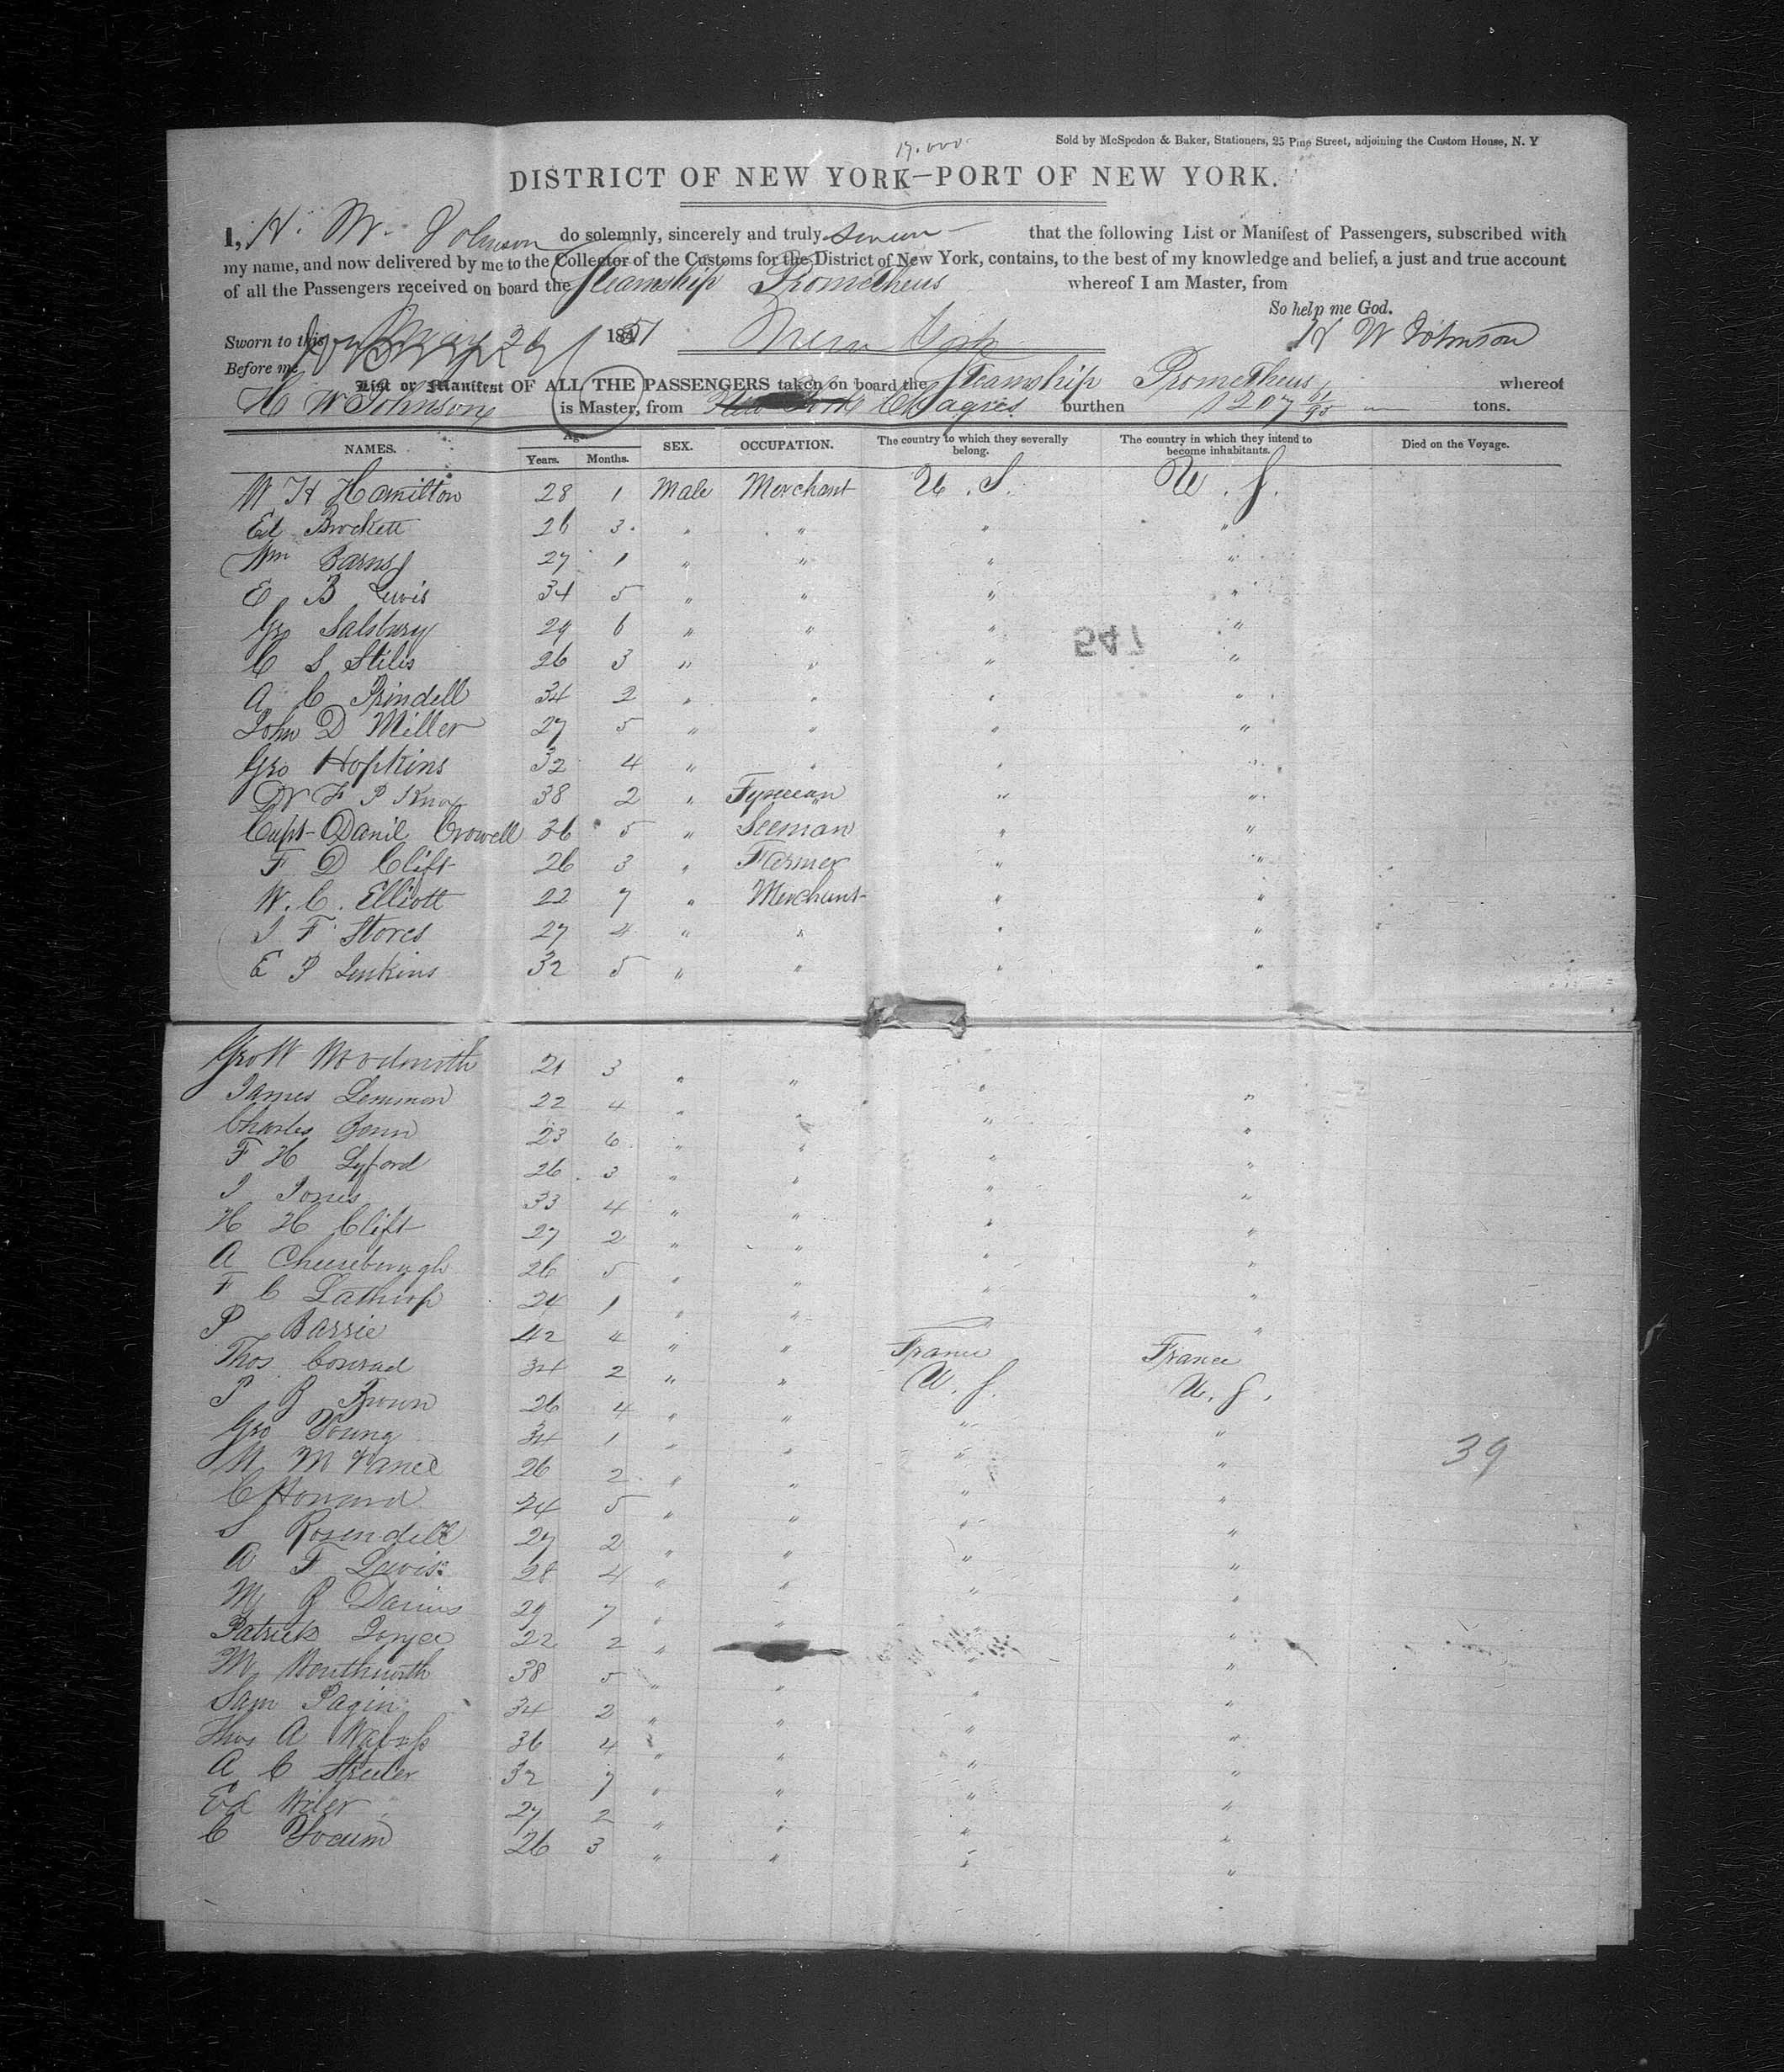 17.000
Sold by McSpedon & Baker, Stationers, 25 Pine Street, adjoining the Custom House, N. Y
DISTRICT OF NEW YORK—PORT OF NEW YORK.
I, H. W. Johnson do solemnly, sincerely and truly swear that the following List or Manifest of Passengers, subscribed with
my name, and now delivered by me to the Collector of the Customs for the District of New York, contains, to the best of my knowledge and belief, a just and true account
of all the Passengers received on board the Steamship Prometheus whereof I am Master, from
So help me God.
Sworn to this 29 1851 New York H W Johnson
Before me
List or Manifest OF ALL THE PASSENGERS taken on board the Steamship Prometheus whereof
H W Johnson is Master, from New York Chagres burthen 1207 61/95 tons.
NAMES. Age. Years. Months. SEX. OCCUPATION. The country to which they severally belong. The country in which they intend to become inhabitants. Died on the Voyage.
W H Hamilton 28 1 Male Merchant U. S. U. S.
Ed Brockett 26 3 " " " "
Wm Barns 27 1 " " " "
E B Lewis 34 5 " " " "
Geo Salsbury 29 6 " " " "
547
C S Stiles 26 3 " " " "
A C Prindell 34 2 " " " "
John D Miller 27 5 " " " "
Geo Hopkins 32 4 " " " "
Dr F P Knox 38 2 " " "
Capt Danil Crowell 36 5 " Seeman " "
F D Clift 26 3 " Farmer " "
W. C. Elliott 22 7 " Merchant " "
J F Stores 27 4 " " " "
E P Jenkins 32 5 " " " "
Geo W Wodworth 21 3 " " "
James Lemmon 22 4 " " " "
Charles 23 6 " " " "
F H Lyford 26 3 " " " "
J Jones 33 4 " " " "
H H Clift 27 2 " " " "
A Cheeseburygh 26 5 " " " "
F C Lathrop 24 1 " " " "
P Barrie 42 4 " " France France
Thos Conrad 34 2 " " U. S. U. S.
P B Brown 26 4 " " " "
Geo Young 34 1 " " " "
39
W M Vance 26 2 " " " "
C Howard 24 5 " " " "
S Rosendell 27 2 " " " "
A F Lewis 28 4 " " " "
M B Darius 29 7 " " "
Patrick Joyce 22 2 " "
M Wentworth 38 5 " " " "
Sam Pagin 34 2 " " " "
Thos A 36 4 " " " "
A C Streeter 32 7 " " " "
Ed Wiler 27 2 " " " "
C Yocum 26 3 " " " "